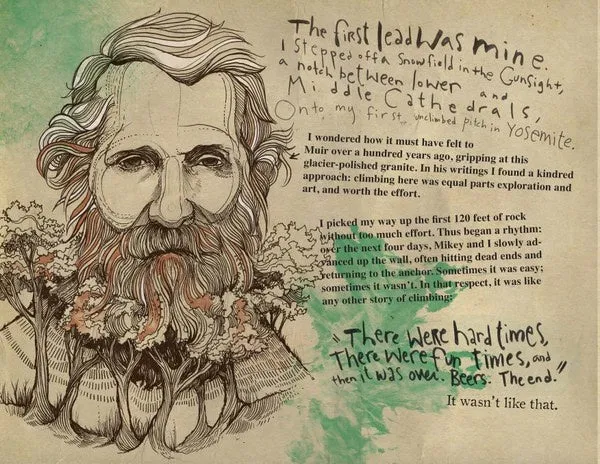 The first lead was mine.
I stepped off a snowfield in the Gunsight,
a notch between lower and
Middle Cathedrals,
Onto my first unclimbed pitch in Yosemite.
I wondered how it must have felt to
Muir over a hundred years ago, gripping at this
glacier-polished granite. In his writings I found a kindred
approach: climbing here was equal parts exploration and
art, and worth the effort.
I picked my way up the first 120 feet of rock
without too much effort. Thus began a rhythm:
over the next four days, Mikey and I slowly ad-
vanced up the wall, often hitting dead ends and
returning to the anchor. Sometimes it was easy;
sometimes it wasn't. In that respect, it was like
any other story of climbing:
"There were hard times,
There were fun times, and
then it was over. Beers. The end."
It wasn't like that.